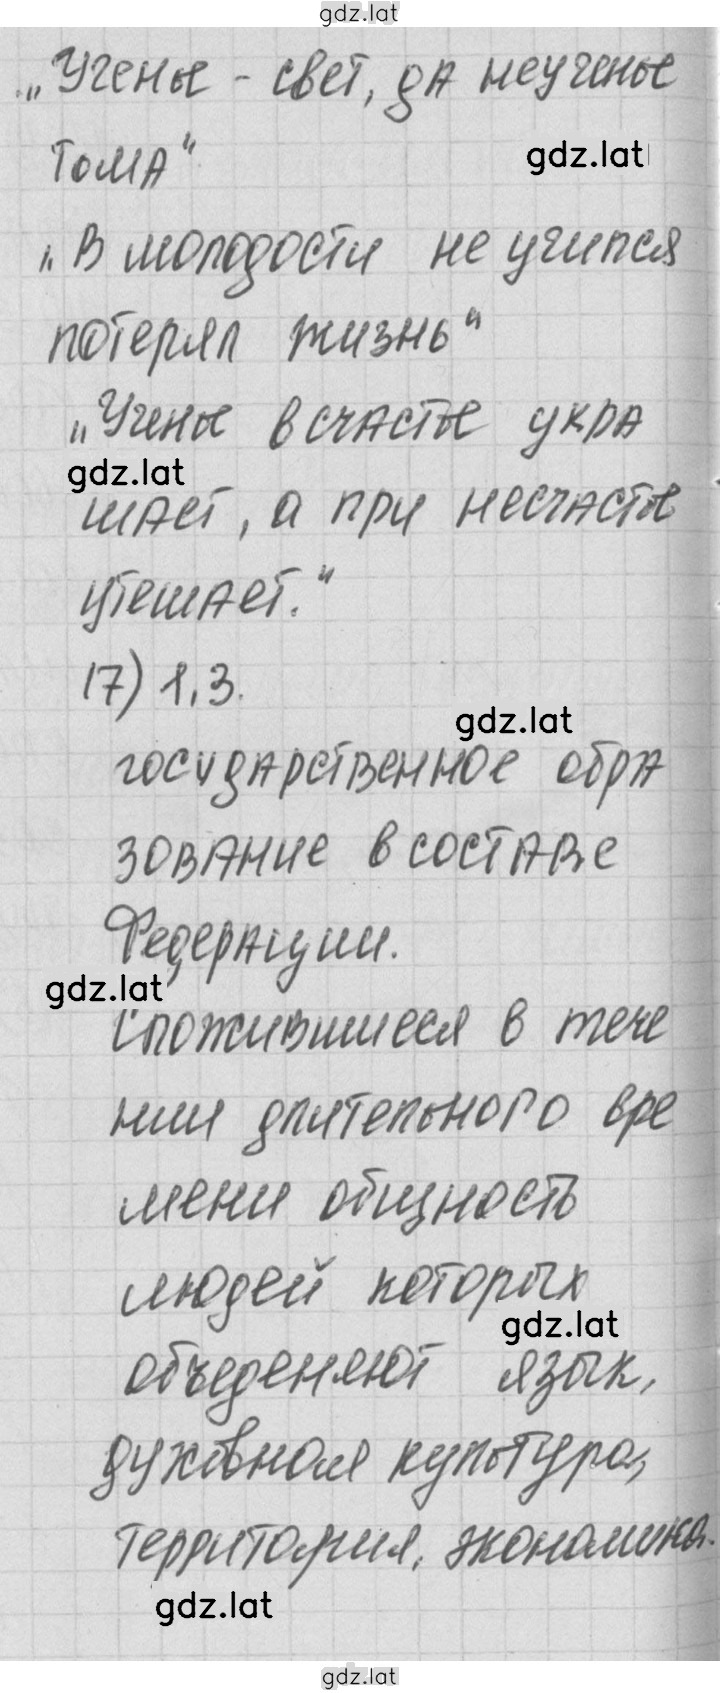 gdz.lat
„Ученье - свет, да неученье
тома"
gdz.lat
„В молодости не учился
потерял жизнь"
„Ученье в счастье укра
gdz.lat
шает, а при несчастье
утешает."
17) 1,3.
gdz.lat
государственное обра
зование в составе
Федерации.
gdz.lat
Сложившиеся в тече
нии длительного вре
мени общность
людей которых
gdz.lat
объеденяют язык,
духовная культура,
территория, экономика.
gdz.lat
gdz.lat